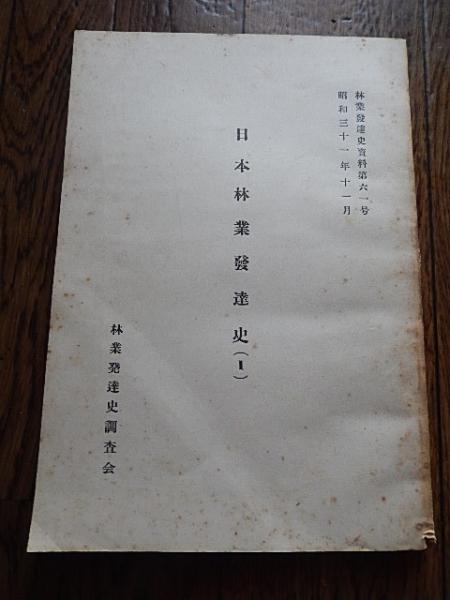 林業發達史資料第六一号
昭和三十一年十一月
日本林業發達史(1)
林業発達史調査会